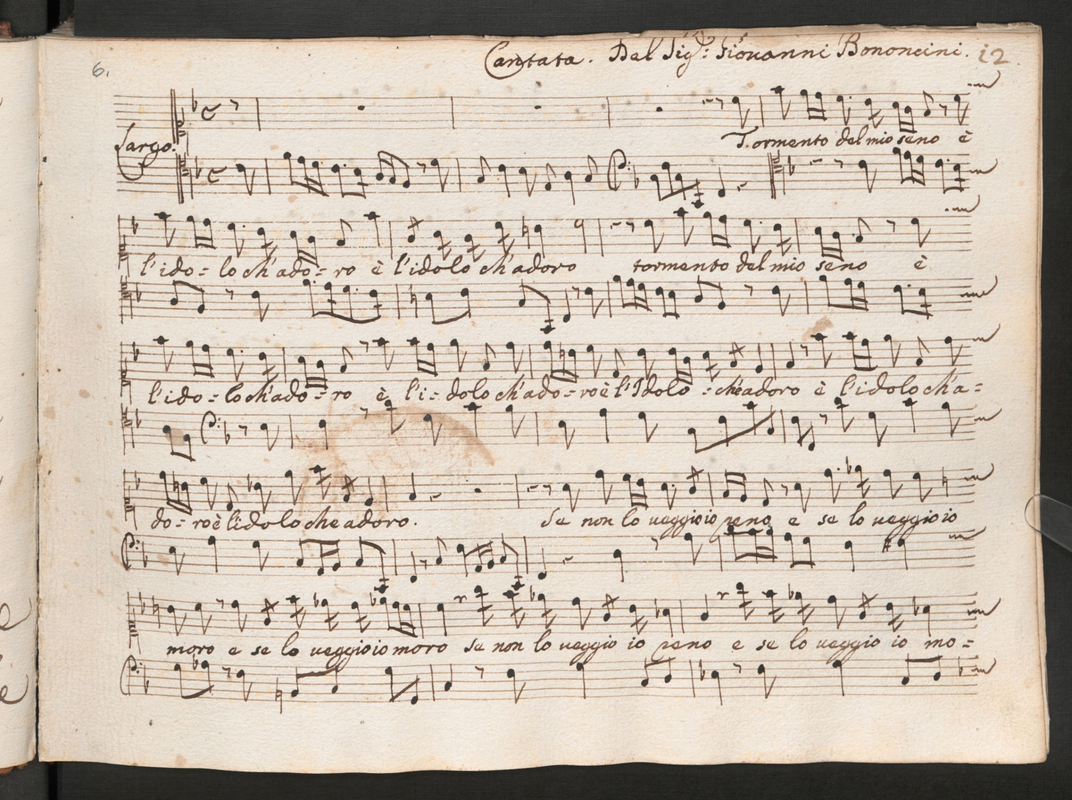 6.
Cantata. Del Sig.r Giovanni Bononcini. 12
Largo.
Tormento del mio seno è
l'ido = lo ch'ado = ro è l'idolo ch'adoro tormento del mio seno è
l'ido = lo ch'ado = ro è l'i = dolo ch'ado = ro è l'Idolo = cheadoro è l'idolo ch'a =
do = ro è l'idolo cheadoro. Se non lo veggio io peno e se lo veggio io
moro e se lo veggio io moro se non lo veggio io peno e se lo veggio io mo =